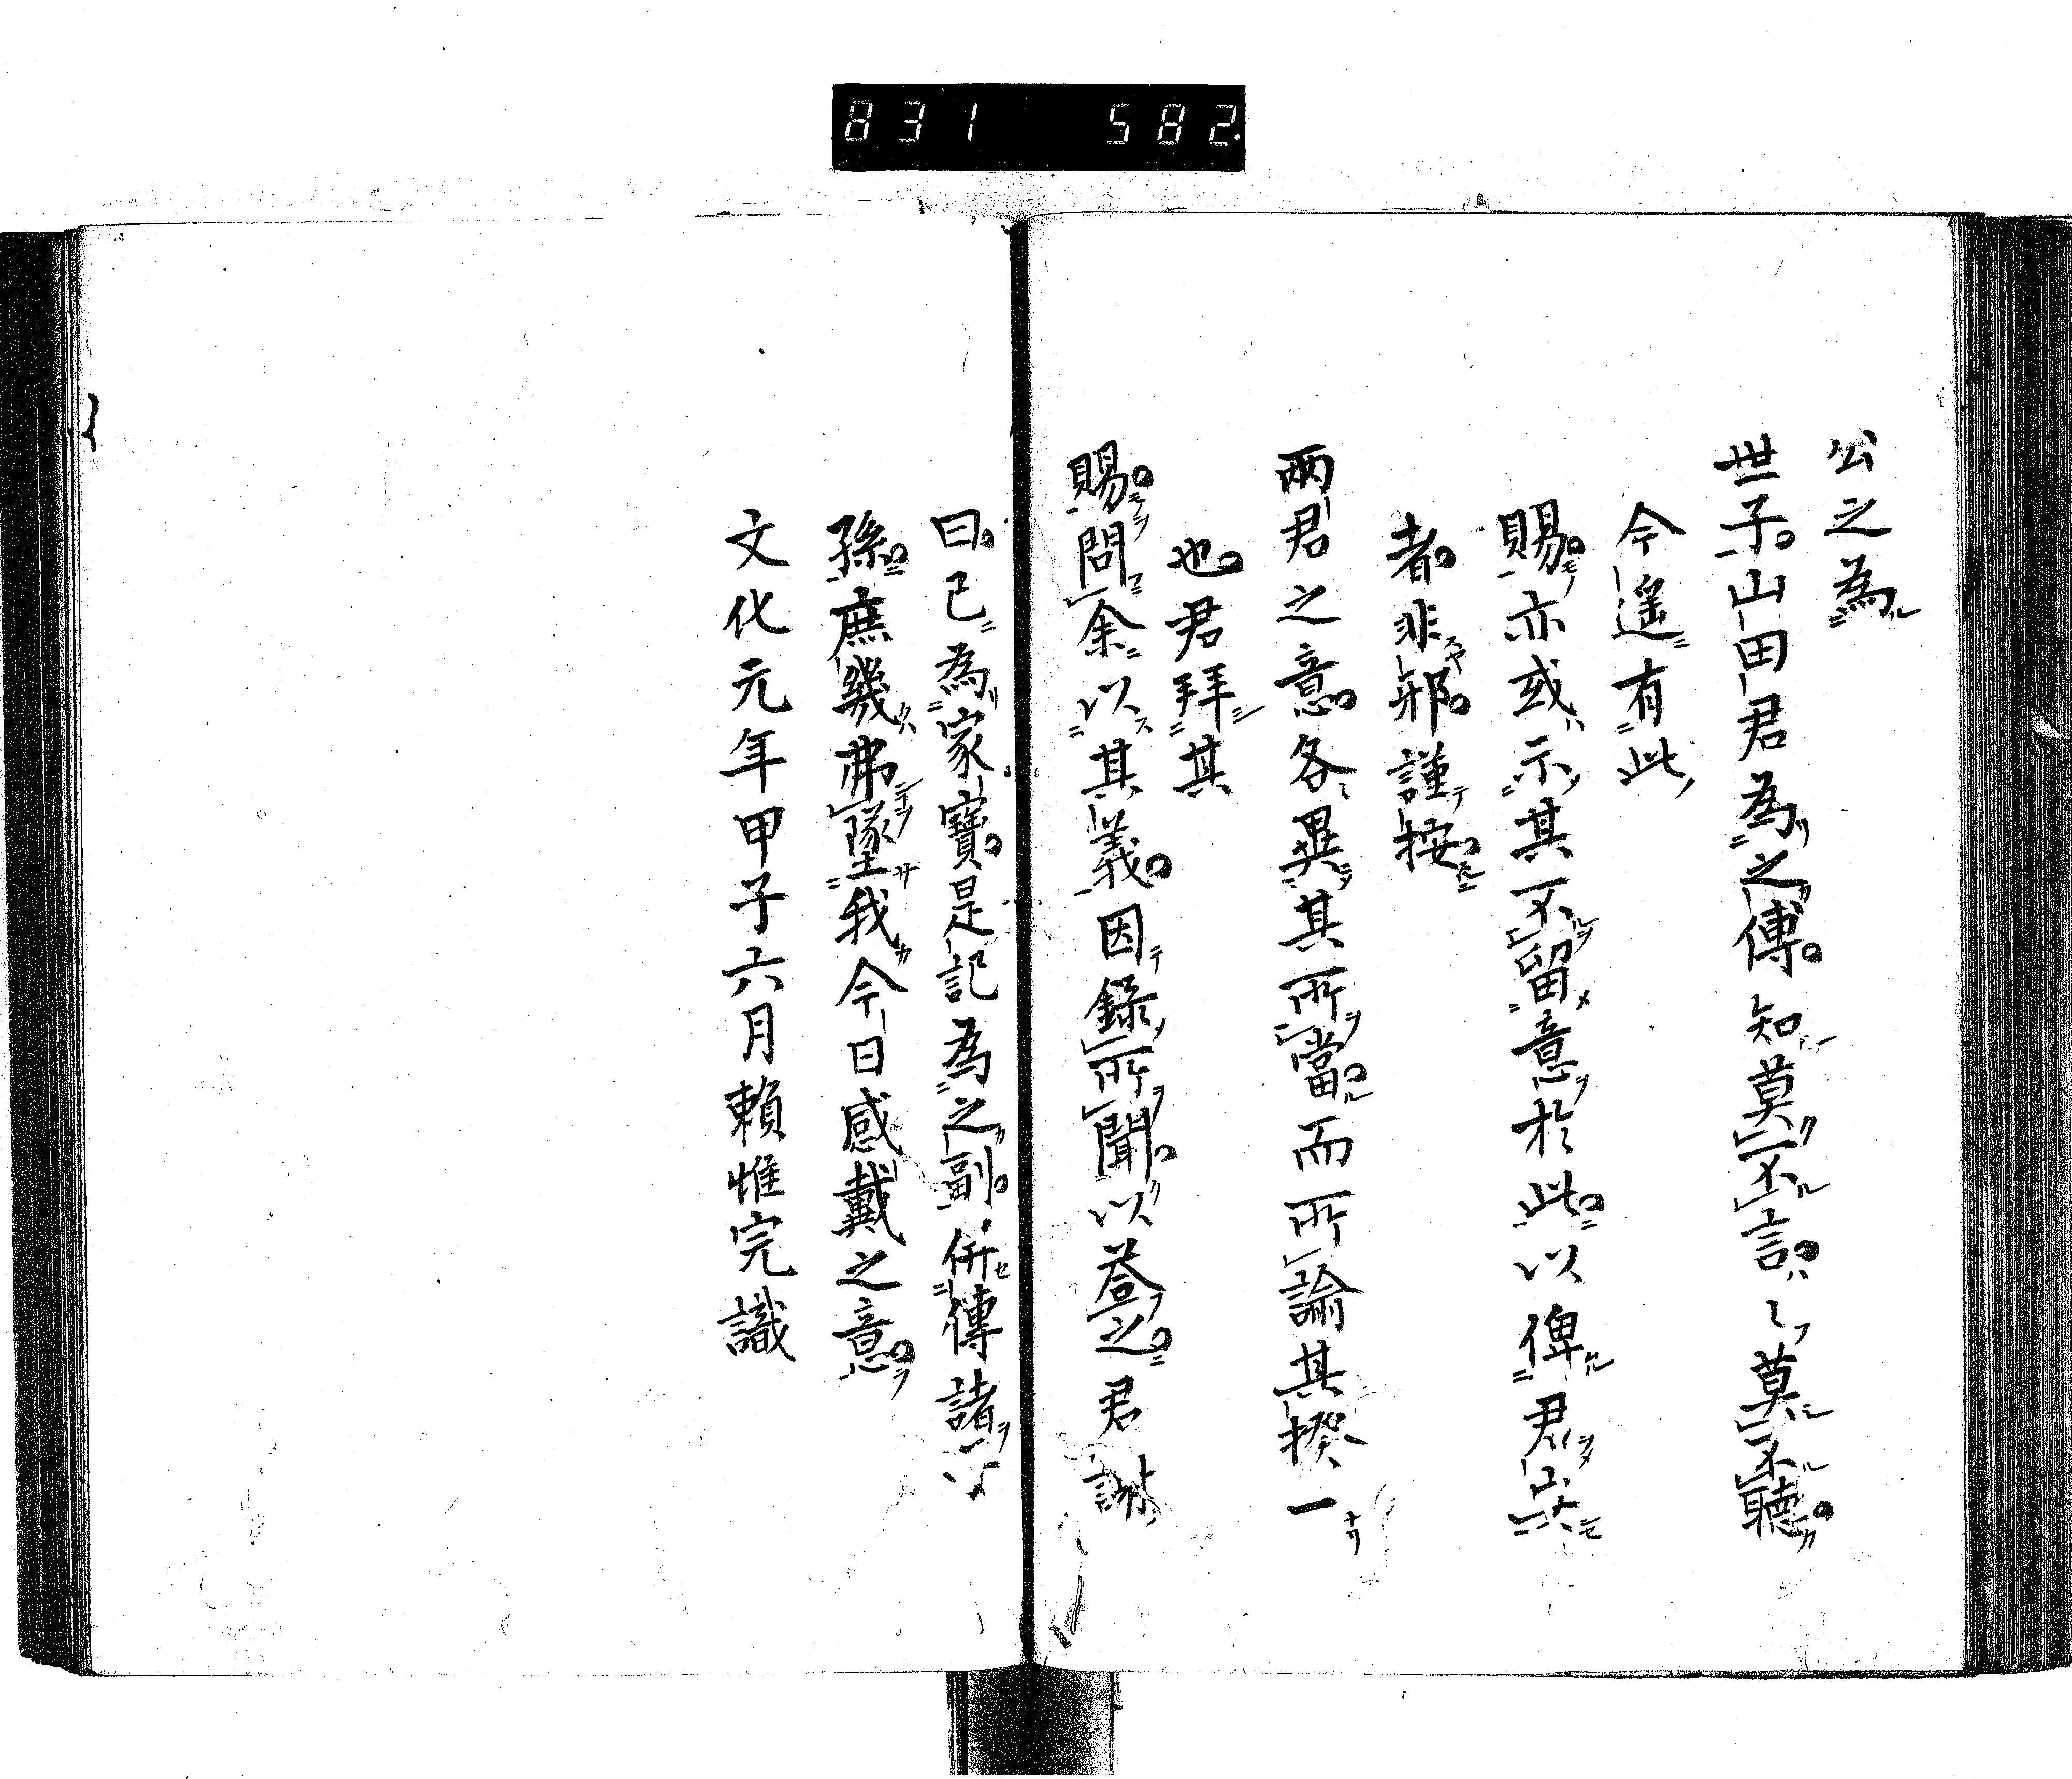 831 582.
公之為
世子山田君為之傅知莫不言〻莫不聴
今遥有此
賜亦或示其不留意於此以俾君
者非邪謹按
兩君之意各異其所當而所論其揆一
也君拜其
賜問余以其義因録所聞以荅之君
曰已為家寶是記為之副併傳諸
孫庶幾弗墜我今日感戴之意
文化元年甲子六月頼惟完識